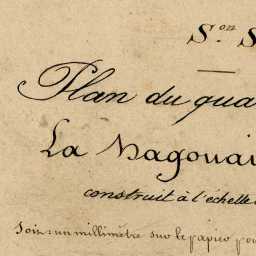 S.on S
Plan du qua
La Hagouai
construit à l'échelle
Soit: un millimètre sur le papier pou